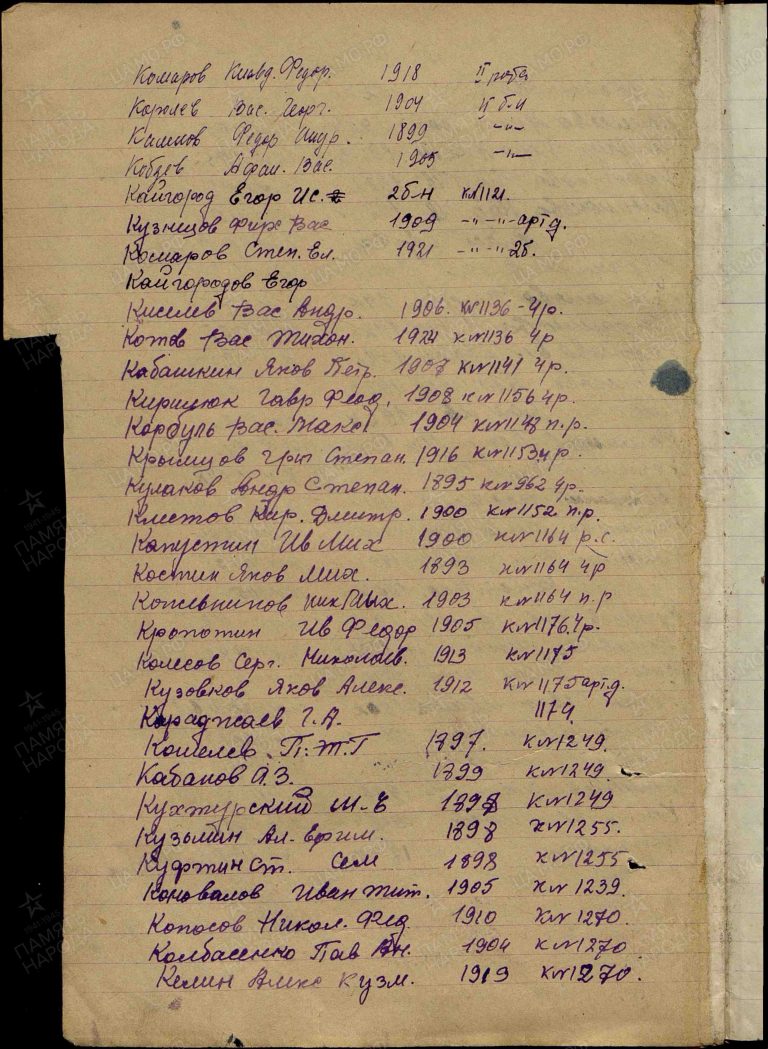 Комаров Клавд. Федор. 1918 II рота
Королев Вас. Георг. 1904 II б-н
Климов Федор 1899 -"-
Кобзев Афан. Вас. 1905 -"-
Кайгород Егор Ис. 2б-н к№1121.
Кузнецов Фирс Вас 1909 -"- -"- артд.
Комаров Степ. Ел. 1921 -"- -"- 2б.
Кайгородов Егор
Киселев Вас Андр. 1906. к№1136 - 4р.
Котов Вас Тихон. 1924 к№1136 4р
Кабашкин Яков Петр. 1907 к№1141 4р.
Гавр Феод. 1908 к№1156 4р.
Корбуль Вас. Макс 1904 к№1148 п.р.
Крымцов Григ Степан. 1916 к№1153 4р.
Кулаков Андр Степан. 1895 к№962 4р.
Кир. Дмитр. 1900 к№1152 п.р.
Капустин Ив Мих 1900 к№1164 р.с.
Костин Яков Мих. 1893 к№1164 4р
Котельников 1903 к№1164 п.р
Кропотин Ив Федор 1905 к№1176 4р.
Колесов Серг. Николаев. 1913 к№1175
Кузовков Яков Алекс. 1912 к№1175 артд.
Караджаев Г.А. 1174
Кошелев П.Т.Г 1897. к№1249.
Кабанов А.З. 1899 к№1249.
Кухтурский М-Е 1898 к№1249
Кузьмин Ал. Ефим. 1898 к№1255.
Куфтин Ст. Сем 1898 к№1255
Коновалов Иван Тит. 1905 к№1239.
Копосов Никол. Фед. 1910 к№1270.
Колбасенко Пав Ан. 1904 к№1270
Келин Алекс Кузм. 1919 к№1270.